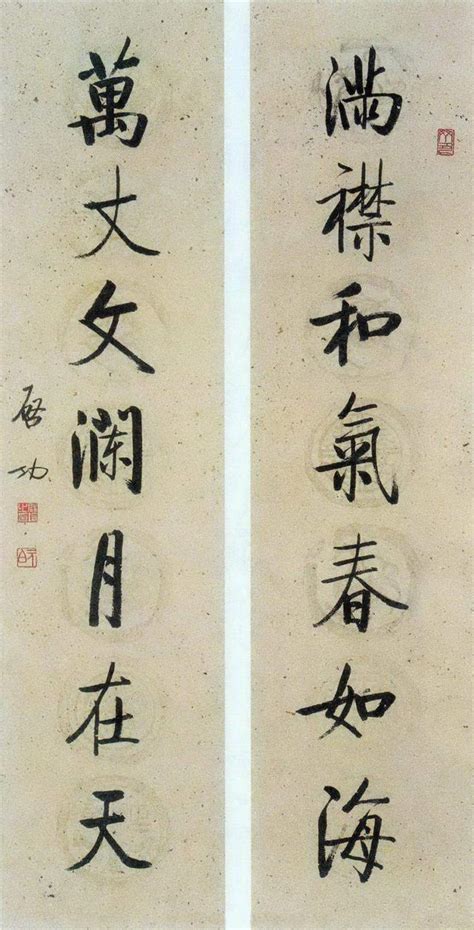 滿襟和氣春如海
萬丈文瀾月在天
啟功